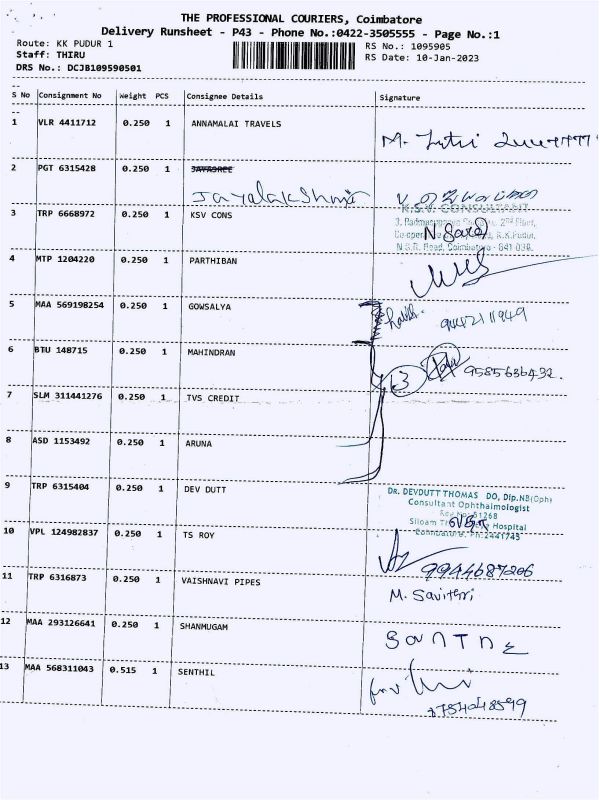 THE PROFESSIONAL COURIERS, Coimbatore
Delivery Runsheet - P43 - Phone No.:0422-3505555 - Page No.:1
Route: KK PUDUR 1
RS No.: 1095905
Staff: THIRU
RS Date: 10-Jan-2023
DRS No.: DCJB109590501
S No Consignment No Weight PCS Consignee Details Signature
1 VLR 4411712 0.250 1 ANNAMALAI TRAVELS
2 PGT 6315428 0.250 1 JAYASREE
Jayalakshmi
3 TRP 6668972 0.250 1 KSV CONS
K.S.V. CONSULTANT
N.S.R. Road, Coimbatore - 641 038.
4 MTP 1204220 0.250 1 PARTHIBAN
5 MAA 569198254 0.250 1 GOWSALYA
9042211949
6 BTU 148715 0.250 1 MAHINDRAN
13 9585636432.
7 SLM 311441276 0.250 1 TVS CREDIT
8 ASD 1153492 0.250 1 ARUNA
9 TRP 6315404 0.250 1 DEV DUTT
DR. DEVDUTT THOMAS DO, Dip.NB(Oph)
Consultant Ophthalmologist
Reg No: 51268
Siloam Hospital
Coimbatore. Ph:2441745
10 VPL 124982837 0.250 1 TS ROY
9944687206
11 TRP 6316873 0.250 1 VAISHNAVI PIPES
M. Savithri
12 MAA 293126641 0.250 1 SHANMUGAM
13 MAA 568311043 0.515 1 SENTHIL